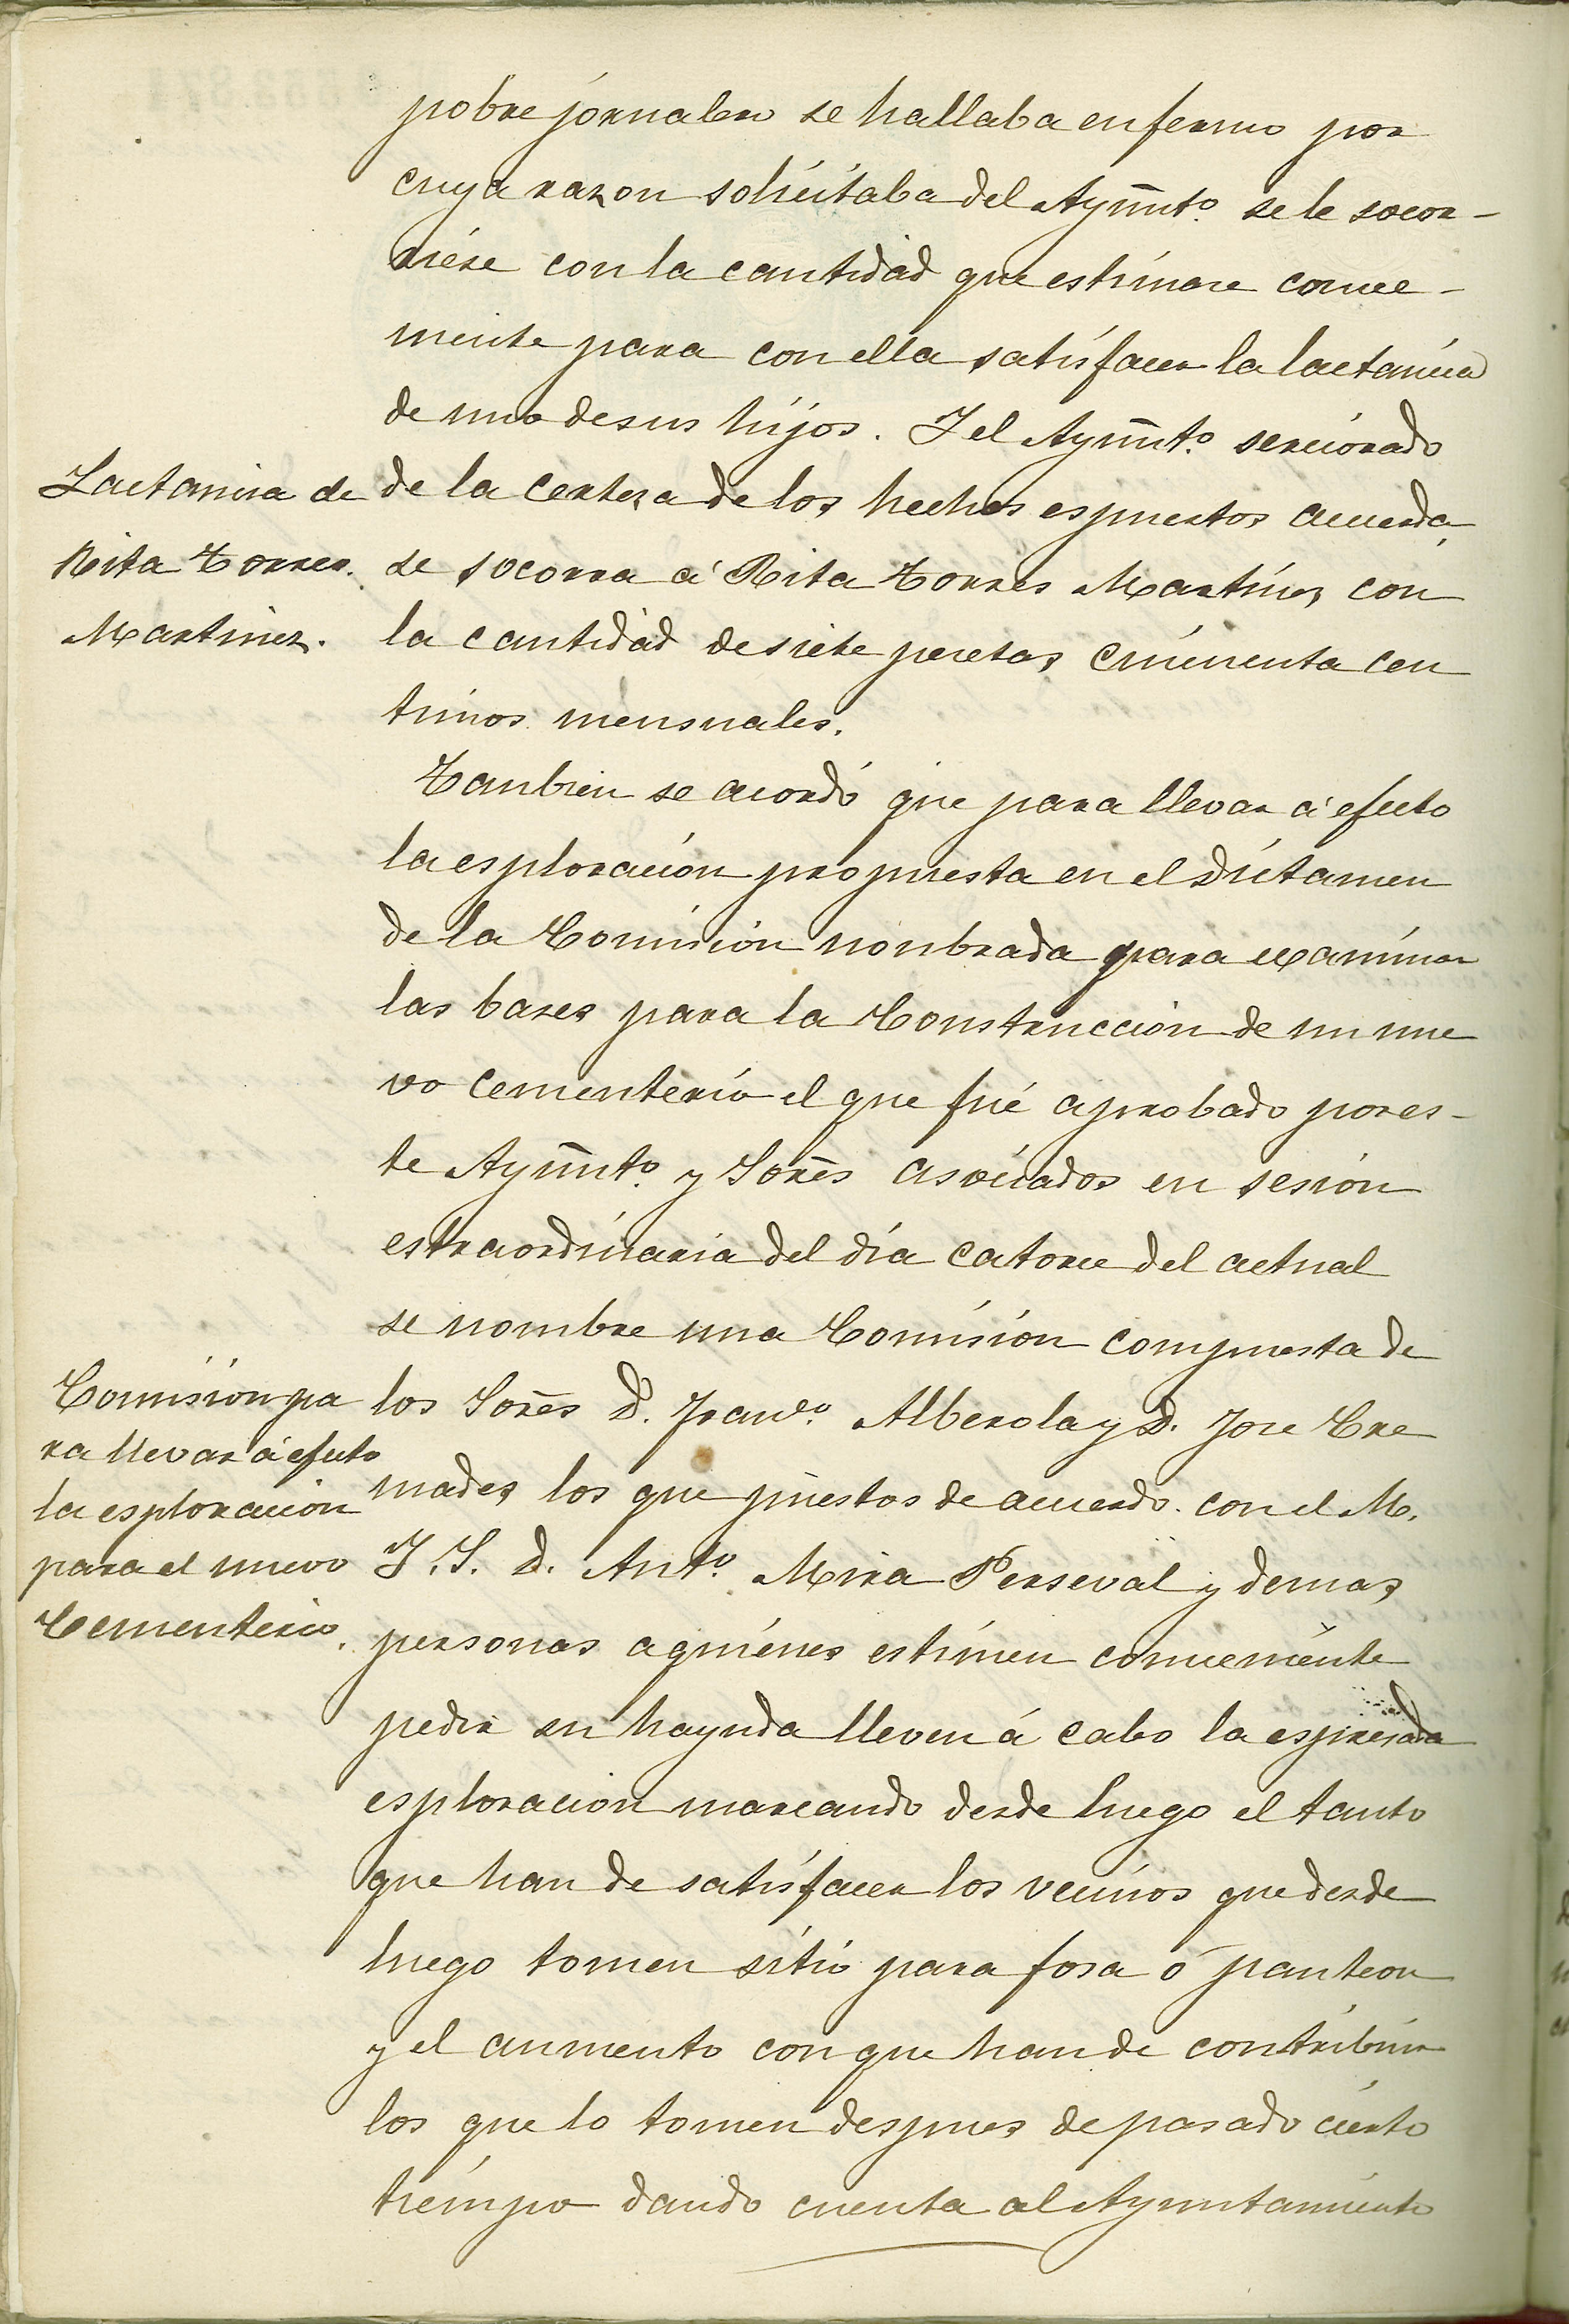 pobre jornalero se hallaba enfermo por
cuya razon solicitaba del Ayūnto. se le socor-
riese con la cantidad que estimare conve-
niente para con ella satisfacer la lactancia
de uno de sus hijos. Y el Ayūnto. sercionado
Lactancia de
Rita Torres
Martinez.
de la certeza de los hechos espuestos acuerda,
se socorra á Rita Torres Martínez con
la cantidad de siete pesetas cincuenta cen
timos mensuales.
Tanbien se acordó que para llevar á efecto
la esploración propuesta en el dictamen
de la Comisión nonbrada para examinar
las bases para la Construcción de un nue
vo cementerio el que fué aprobado por es-
te Ayūnto. y Sores̄ asociados en sesion
estraordinaria del día catorce del actual
se nombre una Comisión compuesta de
Comisión pa
ra llevar á efecto
la esploracion
para el nuevo
Cementerio.
los Sores̄ D. Franco. Alberola y D. Jose Cre
mades los que puestos de acuerdo con el M.
I. S. D. Anto. Mira Perseval y demas
personas a quiénes estimen conveniente
pedir su hayuda lleven á cabo la espresada
esploracion marcando desde luego el tanto
que han de satisfacer los vecinos que desde
luego tomen sitio para fosa ó panteon
y el aumento con que han de contribuir
los que lo tomen despues de pasado cierto
tiempo dando cuenta al Ayuntamiento